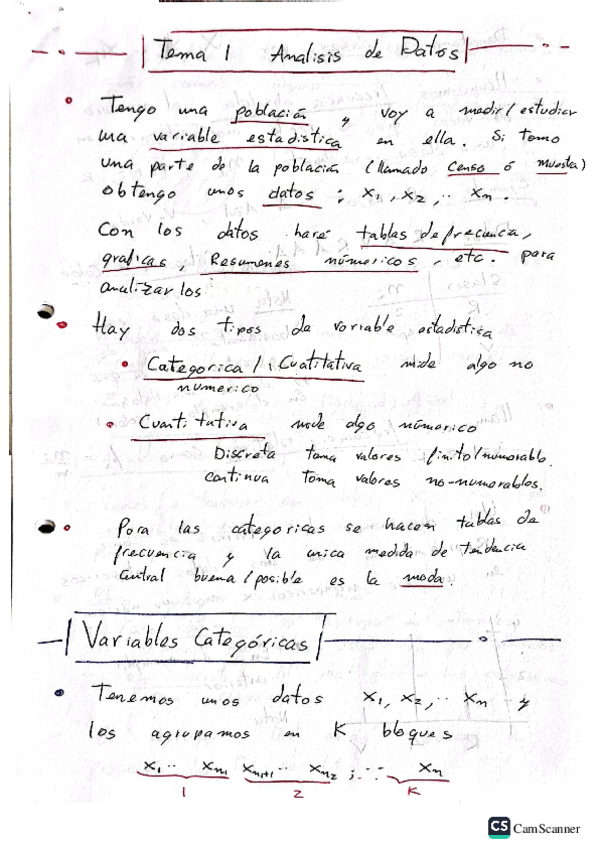 Tema 1 Analisis de Datos
• Tengo una población y voy a medir/estudiar
una variable estadistica en ella. Si tomo
una parte de la población (llamado censo ó muestra)
obtengo unos datos : x₁, x₂, ·· xₙ.
Con los datos haré tablas de frecuencia,
graficas, Resumenes númericos, etc. para
analizarlos
• Hay dos tipos de variable estadistica
• Categorica / Cuatitativa mide algo no
numerico
• Cuantitativa mide algo númerico
Discreta toma valores finito/numerable.
continua toma valores no-numerables.
• Para las categoricas se hacen tablas de
frecuencia y la unica medida de tendencia
central buena/posible es la moda.
Variables Categóricas
• Tenemos unos datos x₁, x₂, ·· xₙ y
los agrupamos en K bloques
x₁ ·· xₙ₁ xₙ₁₊₁ ·· xₙ₂ ; ··· xₙ
1 2 K
CS CamScanner